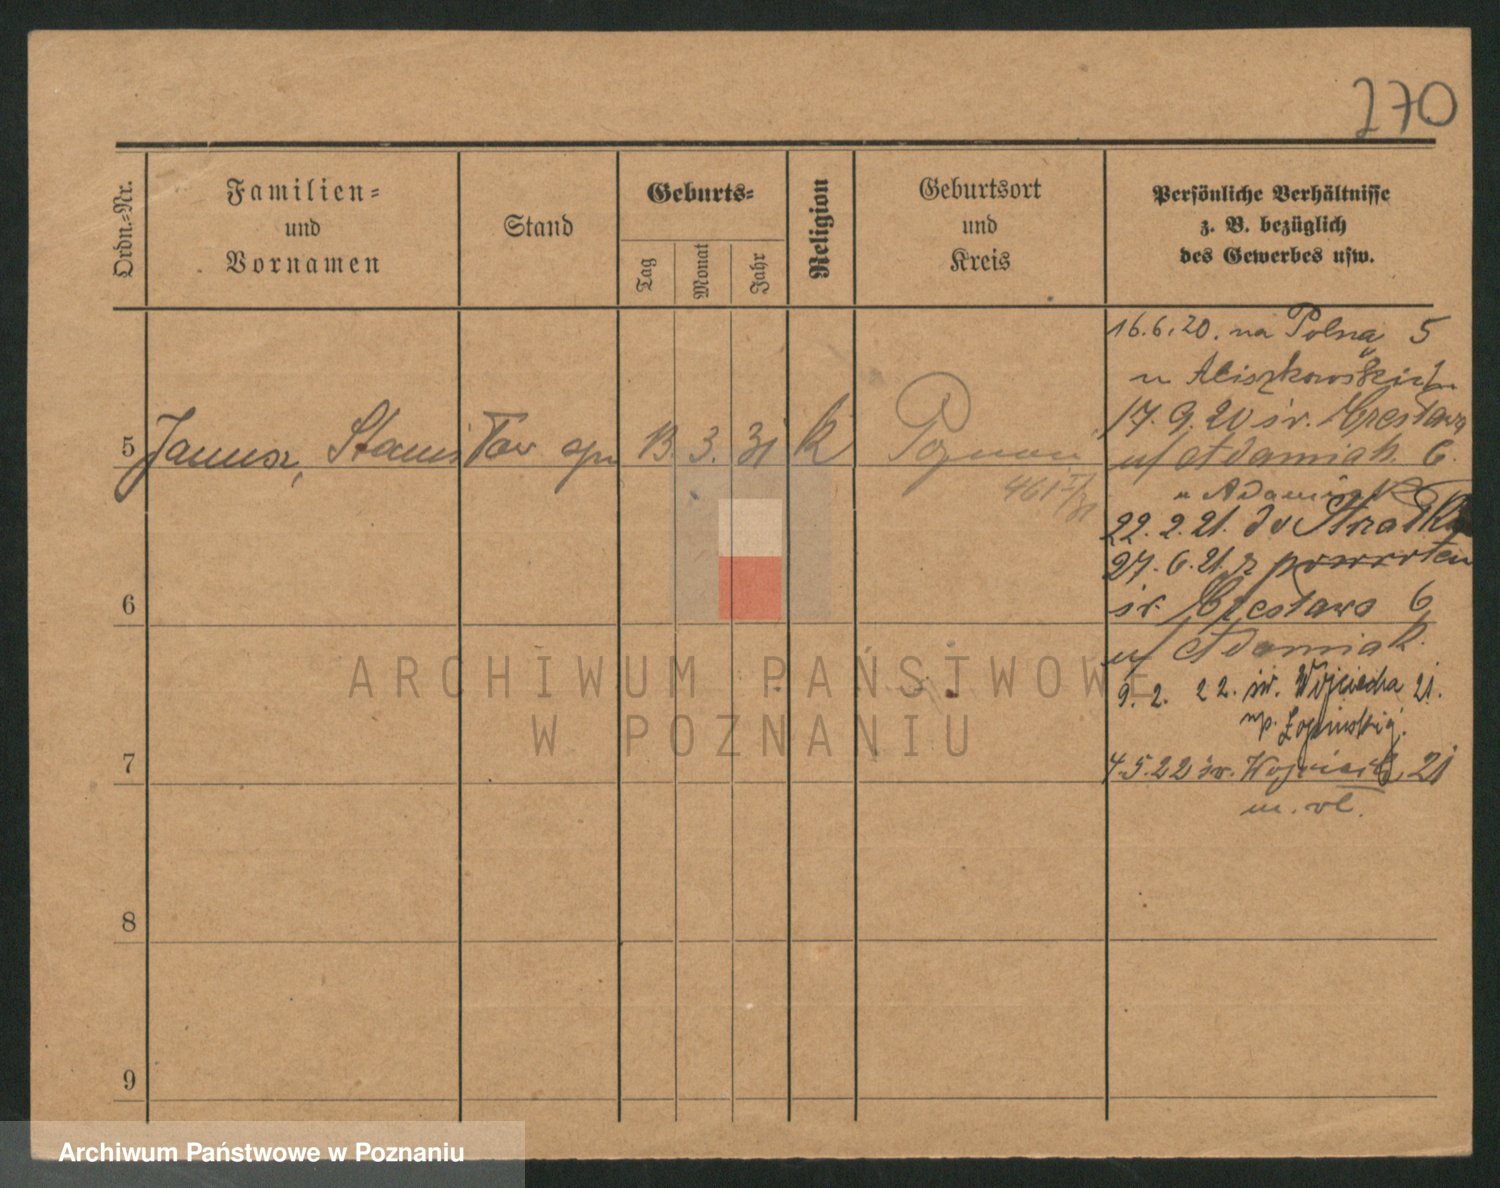 270
Ordn.-Nr.
Familien-
und
Vornamen
Stand
Geburts-
Tag
Monat
Jahr
Religion
Geburtsort
und
Kreis
Persönliche Verhältnisse
z. B. bezüglich
des Gewerbes usw.
16.6.20. na Polną 5
17. 9. 20 św. Czesława
5 Janusz, Stanis 13. 3. 31 k Poznań
u/ Adamiak 6.
u Adamiak
22. 2. 21. do
27. 6. 21. z powrotem
6
św. Czesława 6
u/ Adamiak.
9. 2. 22. św. Wojciecha 21.
7
4.5.22 św. Wojciech 21
m. wł.
8
9
ARCHIWUM PAŃSTWOWE
W POZNANIU
Archiwum Państwowe w Poznaniu